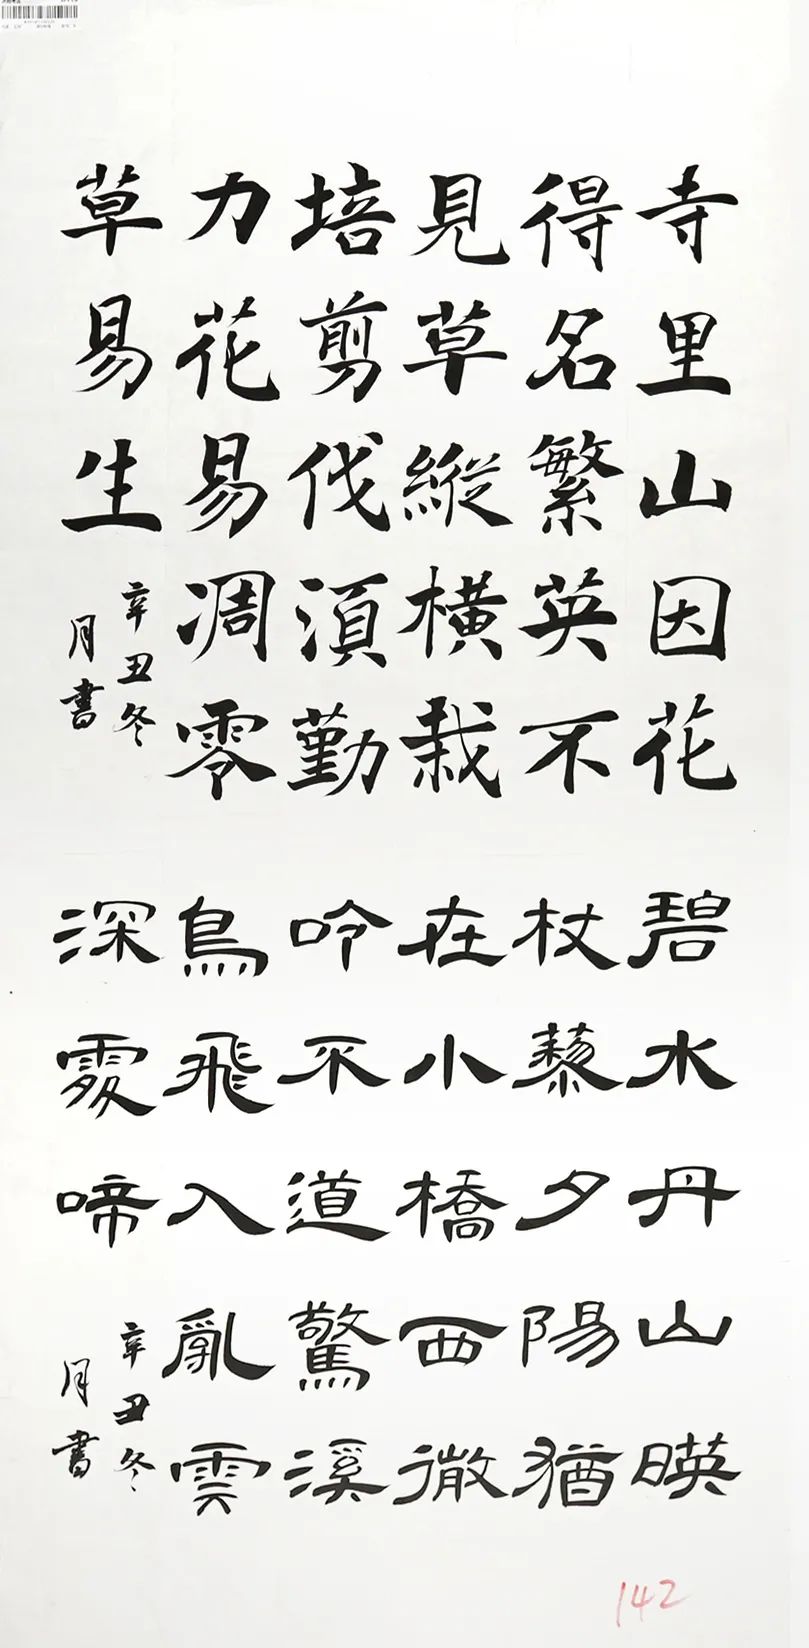 寺里山因花
得名繁英不
見草縱橫栽
培剪伐須勤
力花易凋零
草易生
辛丑冬
月書
碧水丹山暎
杖藜夕陽猶
在小橋西微
吟不道驚溪
鳥飛入亂雲
深處啼
辛丑冬
月書
142